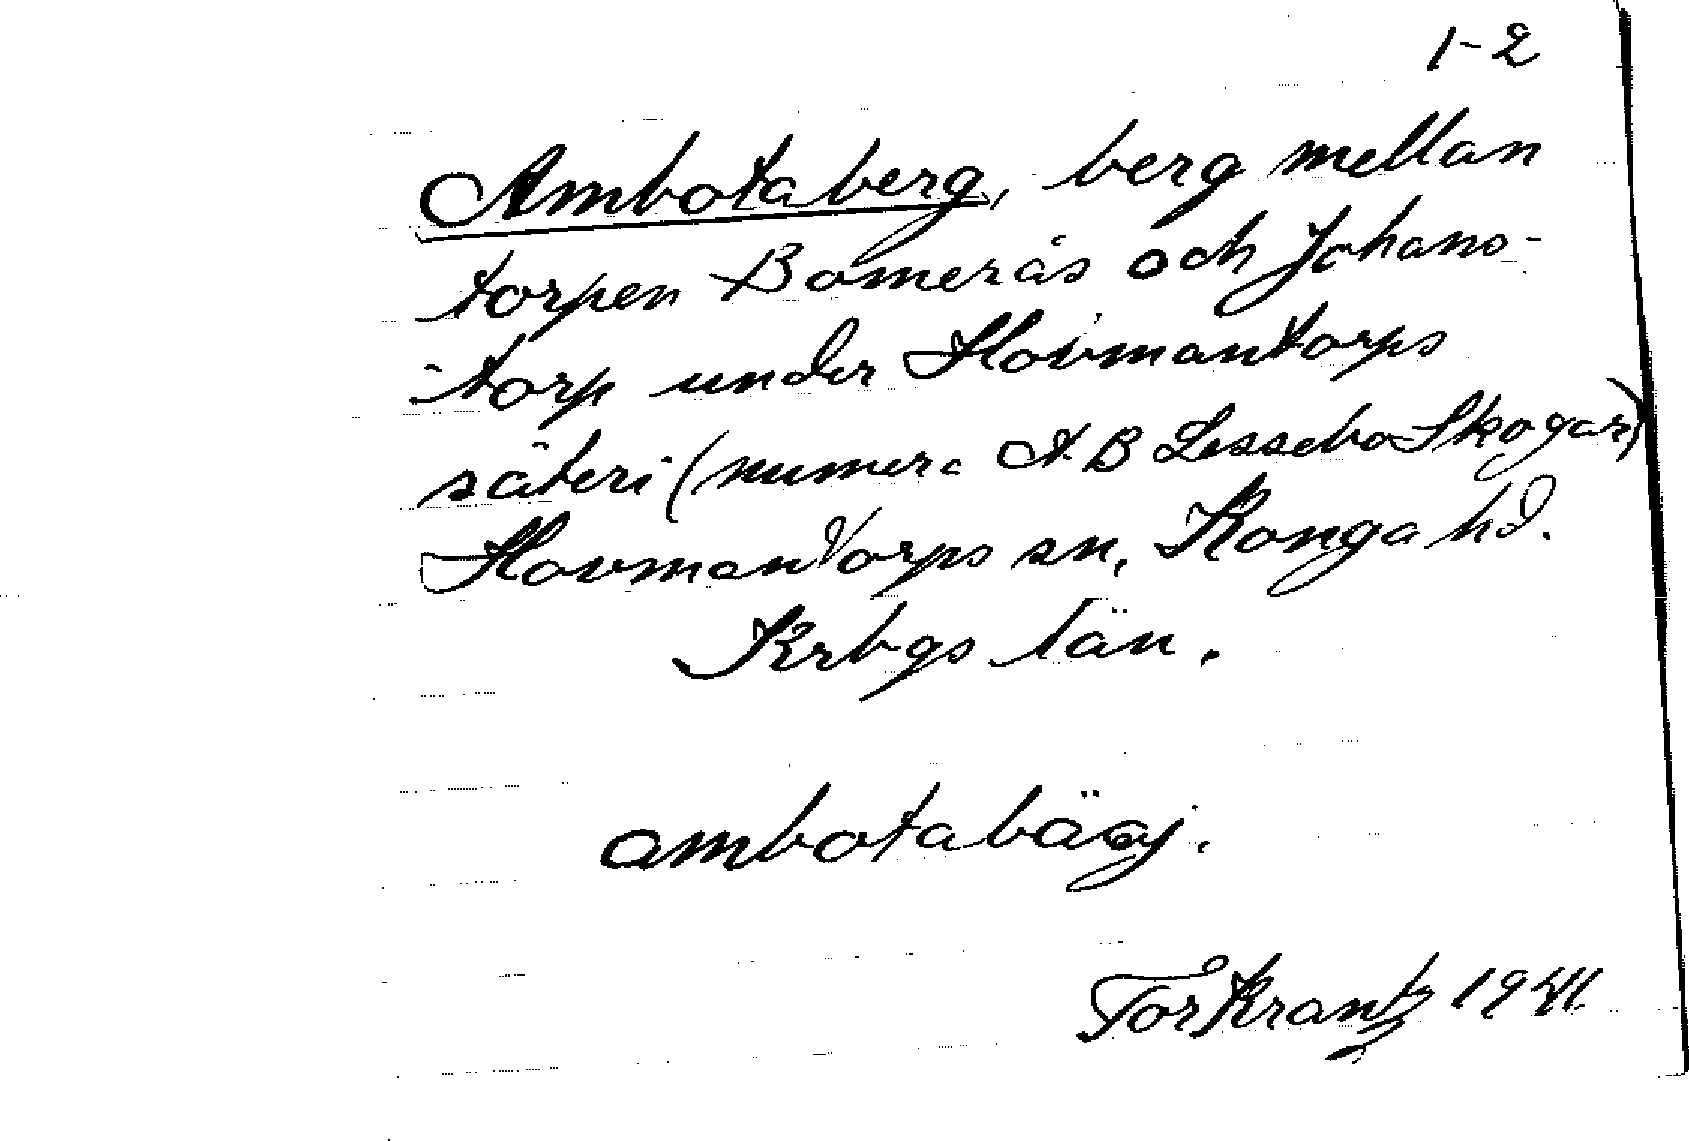 1-2
Ambotaberg, berg mellan
torpen Bomerås och Johans-
torp under Hovmantorps
säteri (numera AB Lessebo Skogar)
Hovmantorps sn, Konga hd.
Krbgs län.
Tor Krantz 1941.